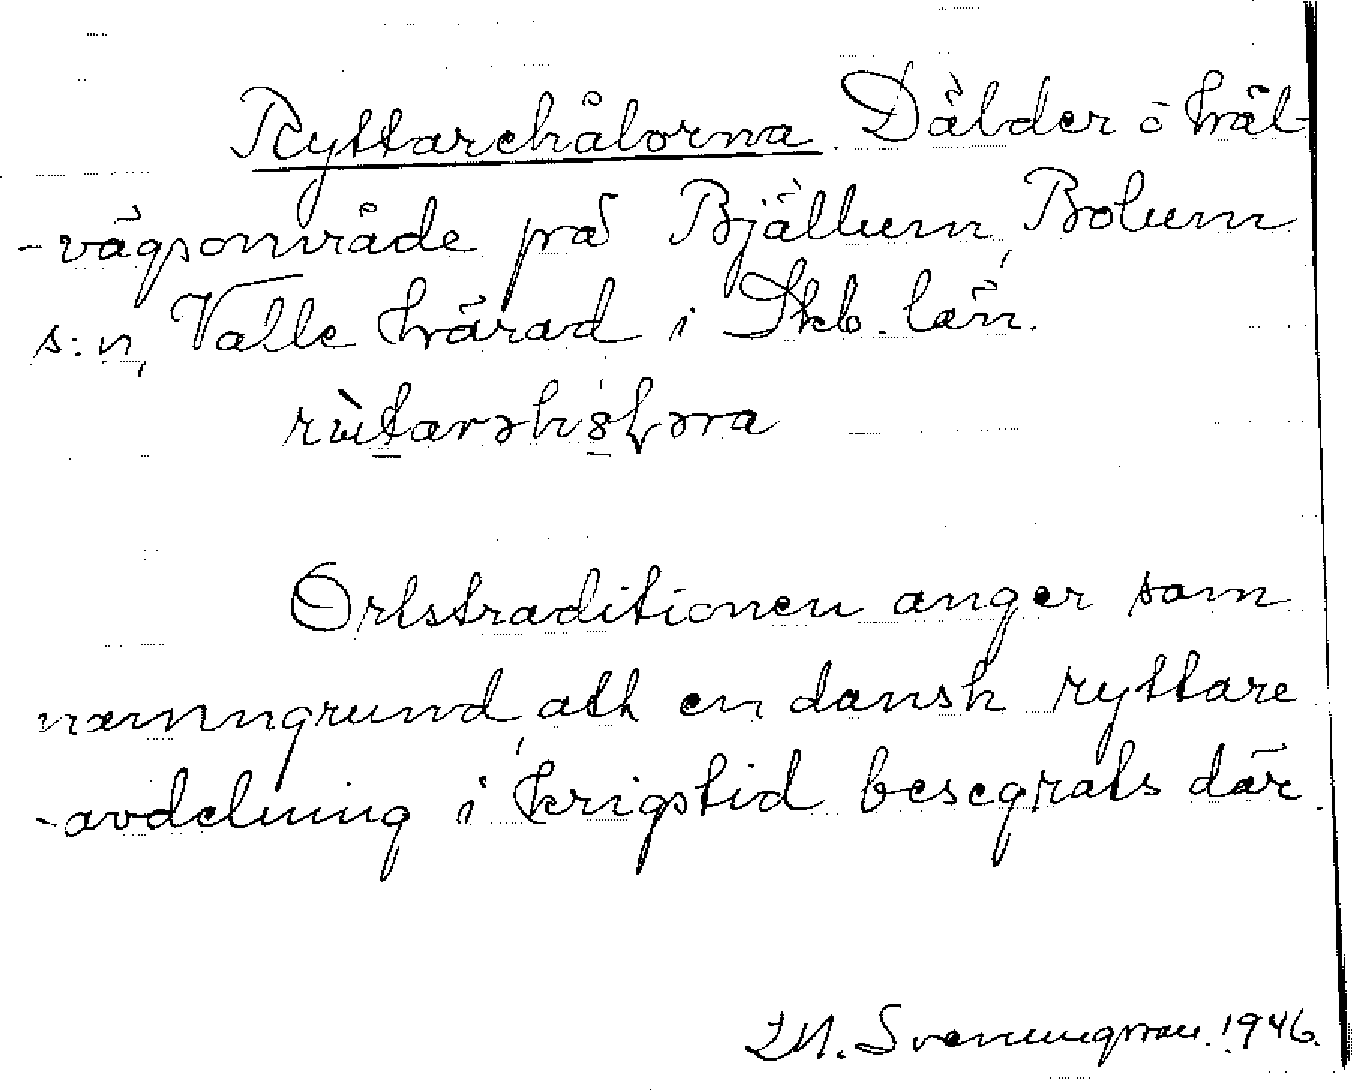 Ryttarehålorna. Dälder o hål-
-vägsområde på Bjällum, Bolum
s:n, Valle härad i Skb. län.
Ortstraditionen anger som
namngrund, att en dansk ryttare
-avdelning i krigstid besegrats där.
Sveningsson. 1946.